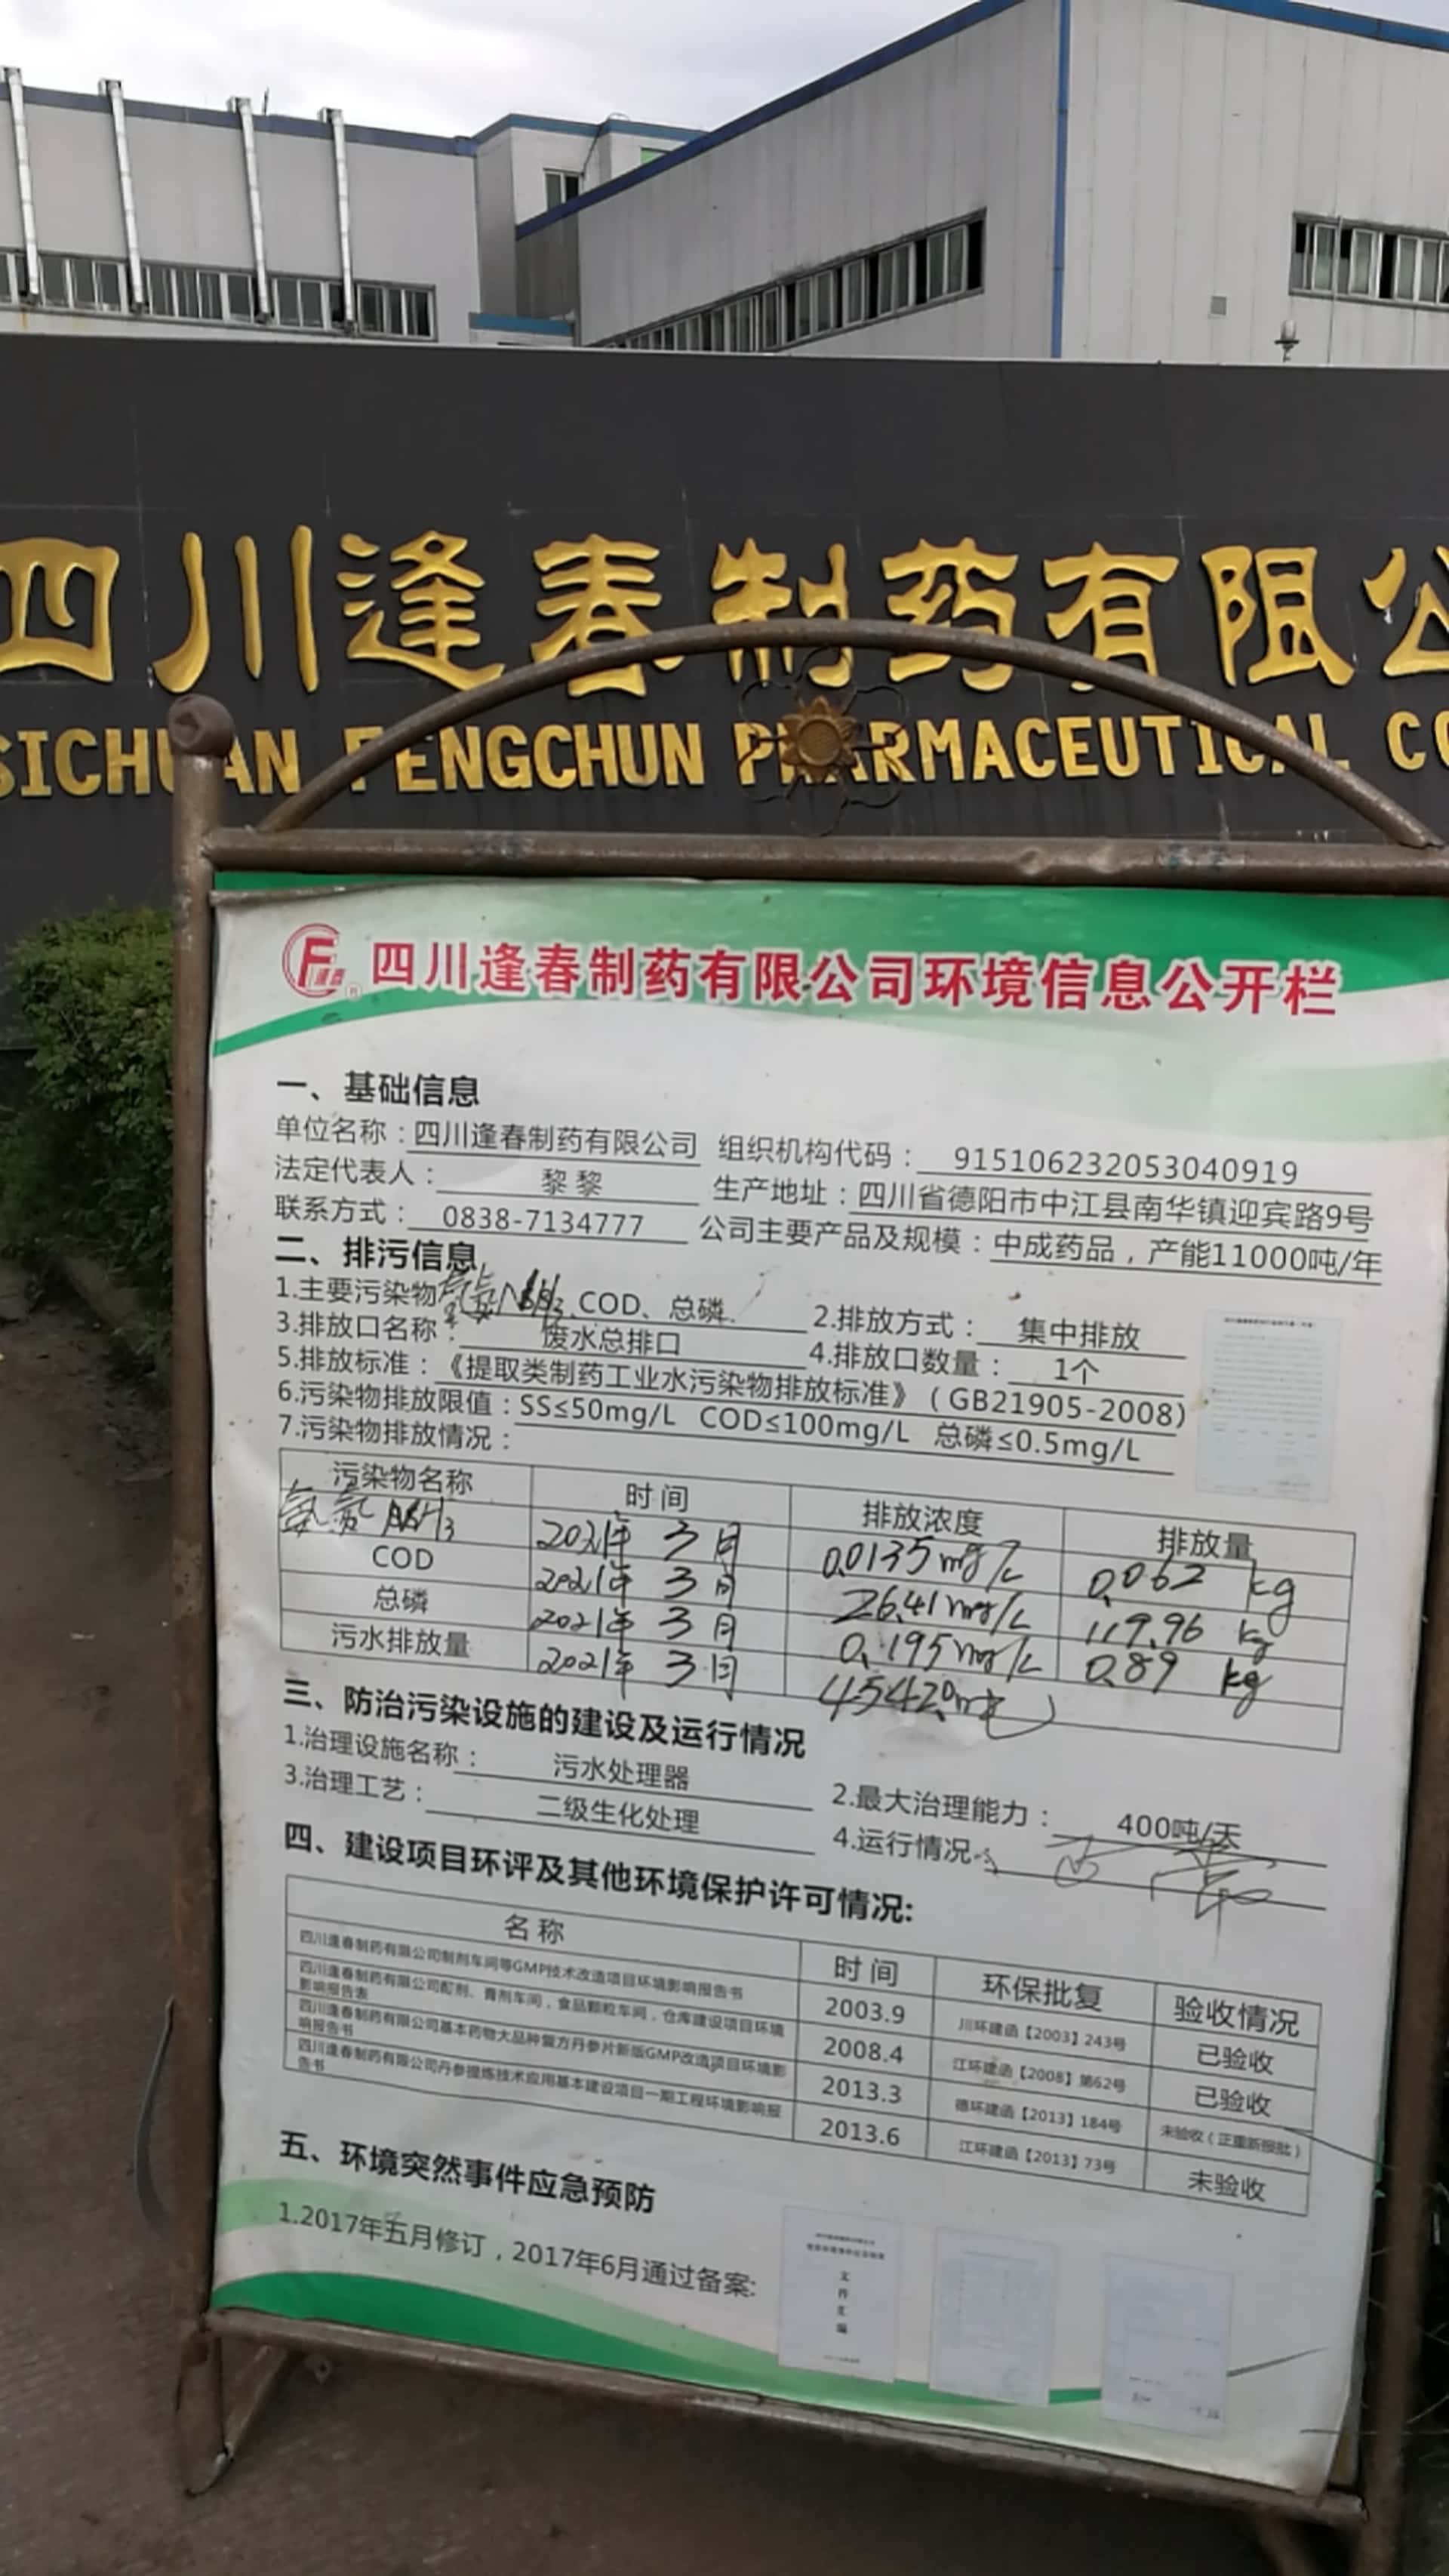 四川逢春制药有限公
SICHUAN FENGCHUN PHARMACEUTICAL CO
四川逢春制药有限公司环境信息公开栏
一、基础信息
单位名称：四川逢春制药有限公司 组织机构代码：915106232053040919
法定代表人：黎黎 生产地址：四川省德阳市中江县南华镇迎宾路9号
联系方式：0838-7134777 公司主要产品及规模：中成药品，产能11000吨/年
二、排污信息
1.主要污染物 氨氮 NH3、COD、总磷 2.排放方式：集中排放
3.排放口名称：废水总排口 4.排放口数量：1个
5.排放标准：《提取类制药工业水污染物排放标准》（GB21905-2008）
6.污染物排放限值：SS≤50mg/L COD≤100mg/L 总磷≤0.5mg/L
7.污染物排放情况：
污染物名称 时间 排放浓度 排放量
氨氮 NH3 2021年 3月 0.0135mg/L 0.062 kg
COD 2021年 3月 26.41mg/L 119.96 kg
总磷 2021年 3月 0.195mg/L 0.89 kg
污水排放量 2021年 3月
三、防治污染设施的建设及运行情况
1.治理设施名称：污水处理器 2.最大治理能力：400吨/天
3.治理工艺：二级生化处理 4.运行情况
四、建设项目环评及其他环境保护许可情况:
名称 时间 环保批复 验收情况
四川逢春制药有限公司制剂车间等GMP技术改造项目环境影响报告书 2003.9 川环建函【2003】243号 已验收
四川逢春制药有限公司配剂、膏剂车间，食品颗粒车间，仓库建设项目环境
影响报告表 2008.4 江环建函【2008】第62号 已验收
四川逢春制药有限公司基本药物大品种复方丹参片新版GMP改造项目环境影
响报告书 2013.3 德环建函【2013】184号 未验收（正重新报批）
四川逢春制药有限公司丹参提炼技术应用基本建设项目一期工程环境影响报
告书 2013.6 江环建函【2013】73号 未验收
五、环境突然事件应急预防
1.2017年五月修订，2017年6月通过备案:
文
件
汇
编